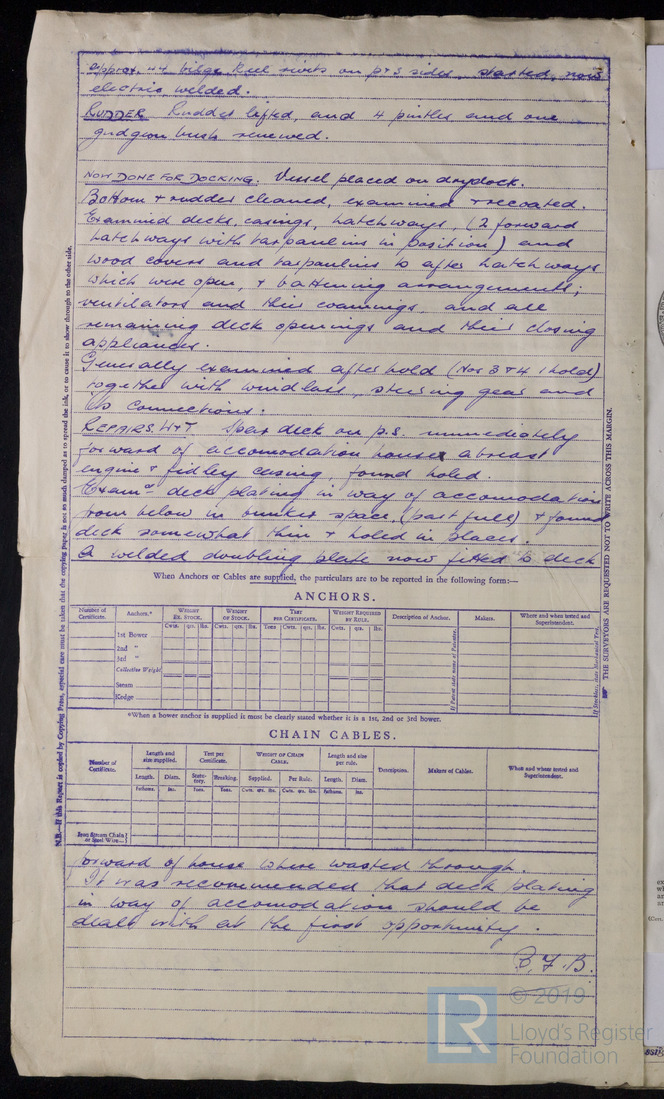 approx. 44 bilge keel rivets on p & s sides, started, now
electric welded.
RUDDER Rudder lifted, and 4 pintles and one
gudgeon bush renewed.
NOW DONE FOR DOCKING. Vessel placed on drydock.
Bottom + rudder cleaned, examined + recoated.
Examined decks, casings, hatchways, (2 forward
hatchways with tarpaulins in position) and
wood covers and tarpaulins to after hatchways
which were open, + battening arrangements;
ventilators and their coamings, and all
remaining deck openings and their closing
appliances.
Generally examined after hold (Nos 3 & 4 hold)
together with windlass, steering gear and
its connections.
REPAIRS W+T Spar deck on p.s. immediately
forward of accomodation house abreast
engine + fidley casing found holed.
Exam'd deck plating in way of accomodation
from below in bunker space (part full) + found
deck somewhat thin + holed in places.
A welded doubling plate now fitted to deck
When Anchors or Cables are supplied, the particulars are to be reported in the following form:—
ANCHORS.
Number of Certificate. Anchors.* WEIGHT EX. STOCK. WEIGHT OF STOCK. TEST PER CERTIFICATE. WEIGHT REQUIRED BY RULE. Description of Anchor. Makers. Where and when tested and Superintendent.
Cwts. qrs. lbs. Cwts. qrs. lbs. Tons Cwts. qrs. lbs. Cwts. qrs. lbs.
1st Bower
2nd "
3rd "
Collective Weight
Stream
Kedge
*When a bower anchor is supplied it must be clearly stated whether it is a 1st, 2nd or 3rd bower.
CHAIN CABLES.
Number of Certificate. Length and size supplied. Test per Certificate. WEIGHT OF CHAIN CABLE. Length and size per rule. Description. Makers of Cables. When and where tested and Superintendent.
Length. Diam. Statutory. Breaking. Supplied. Per Rule. Length. Diam.
Fathoms. Ins. Tons. Tons. Cwts. qrs. lbs. Cwts. qrs. lbs. Fathoms. Ins.
Iron Stream Chain or Steel Wire
forward of house where wasted through.
It was recommended that deck plating
in way of accomodation should be
dealt with at the first opportunity.
B.F.B.
N.B.—If this Report is copied by Copying Press, especial care must be taken that the copying paper is not so much damped as to spread the ink, or to cause it to show through to the other side.
THE SURVEYORS ARE REQUESTED NOT TO WRITE ACROSS THIS MARGIN.
© 2019
LR
Lloyd's Register
Foundation